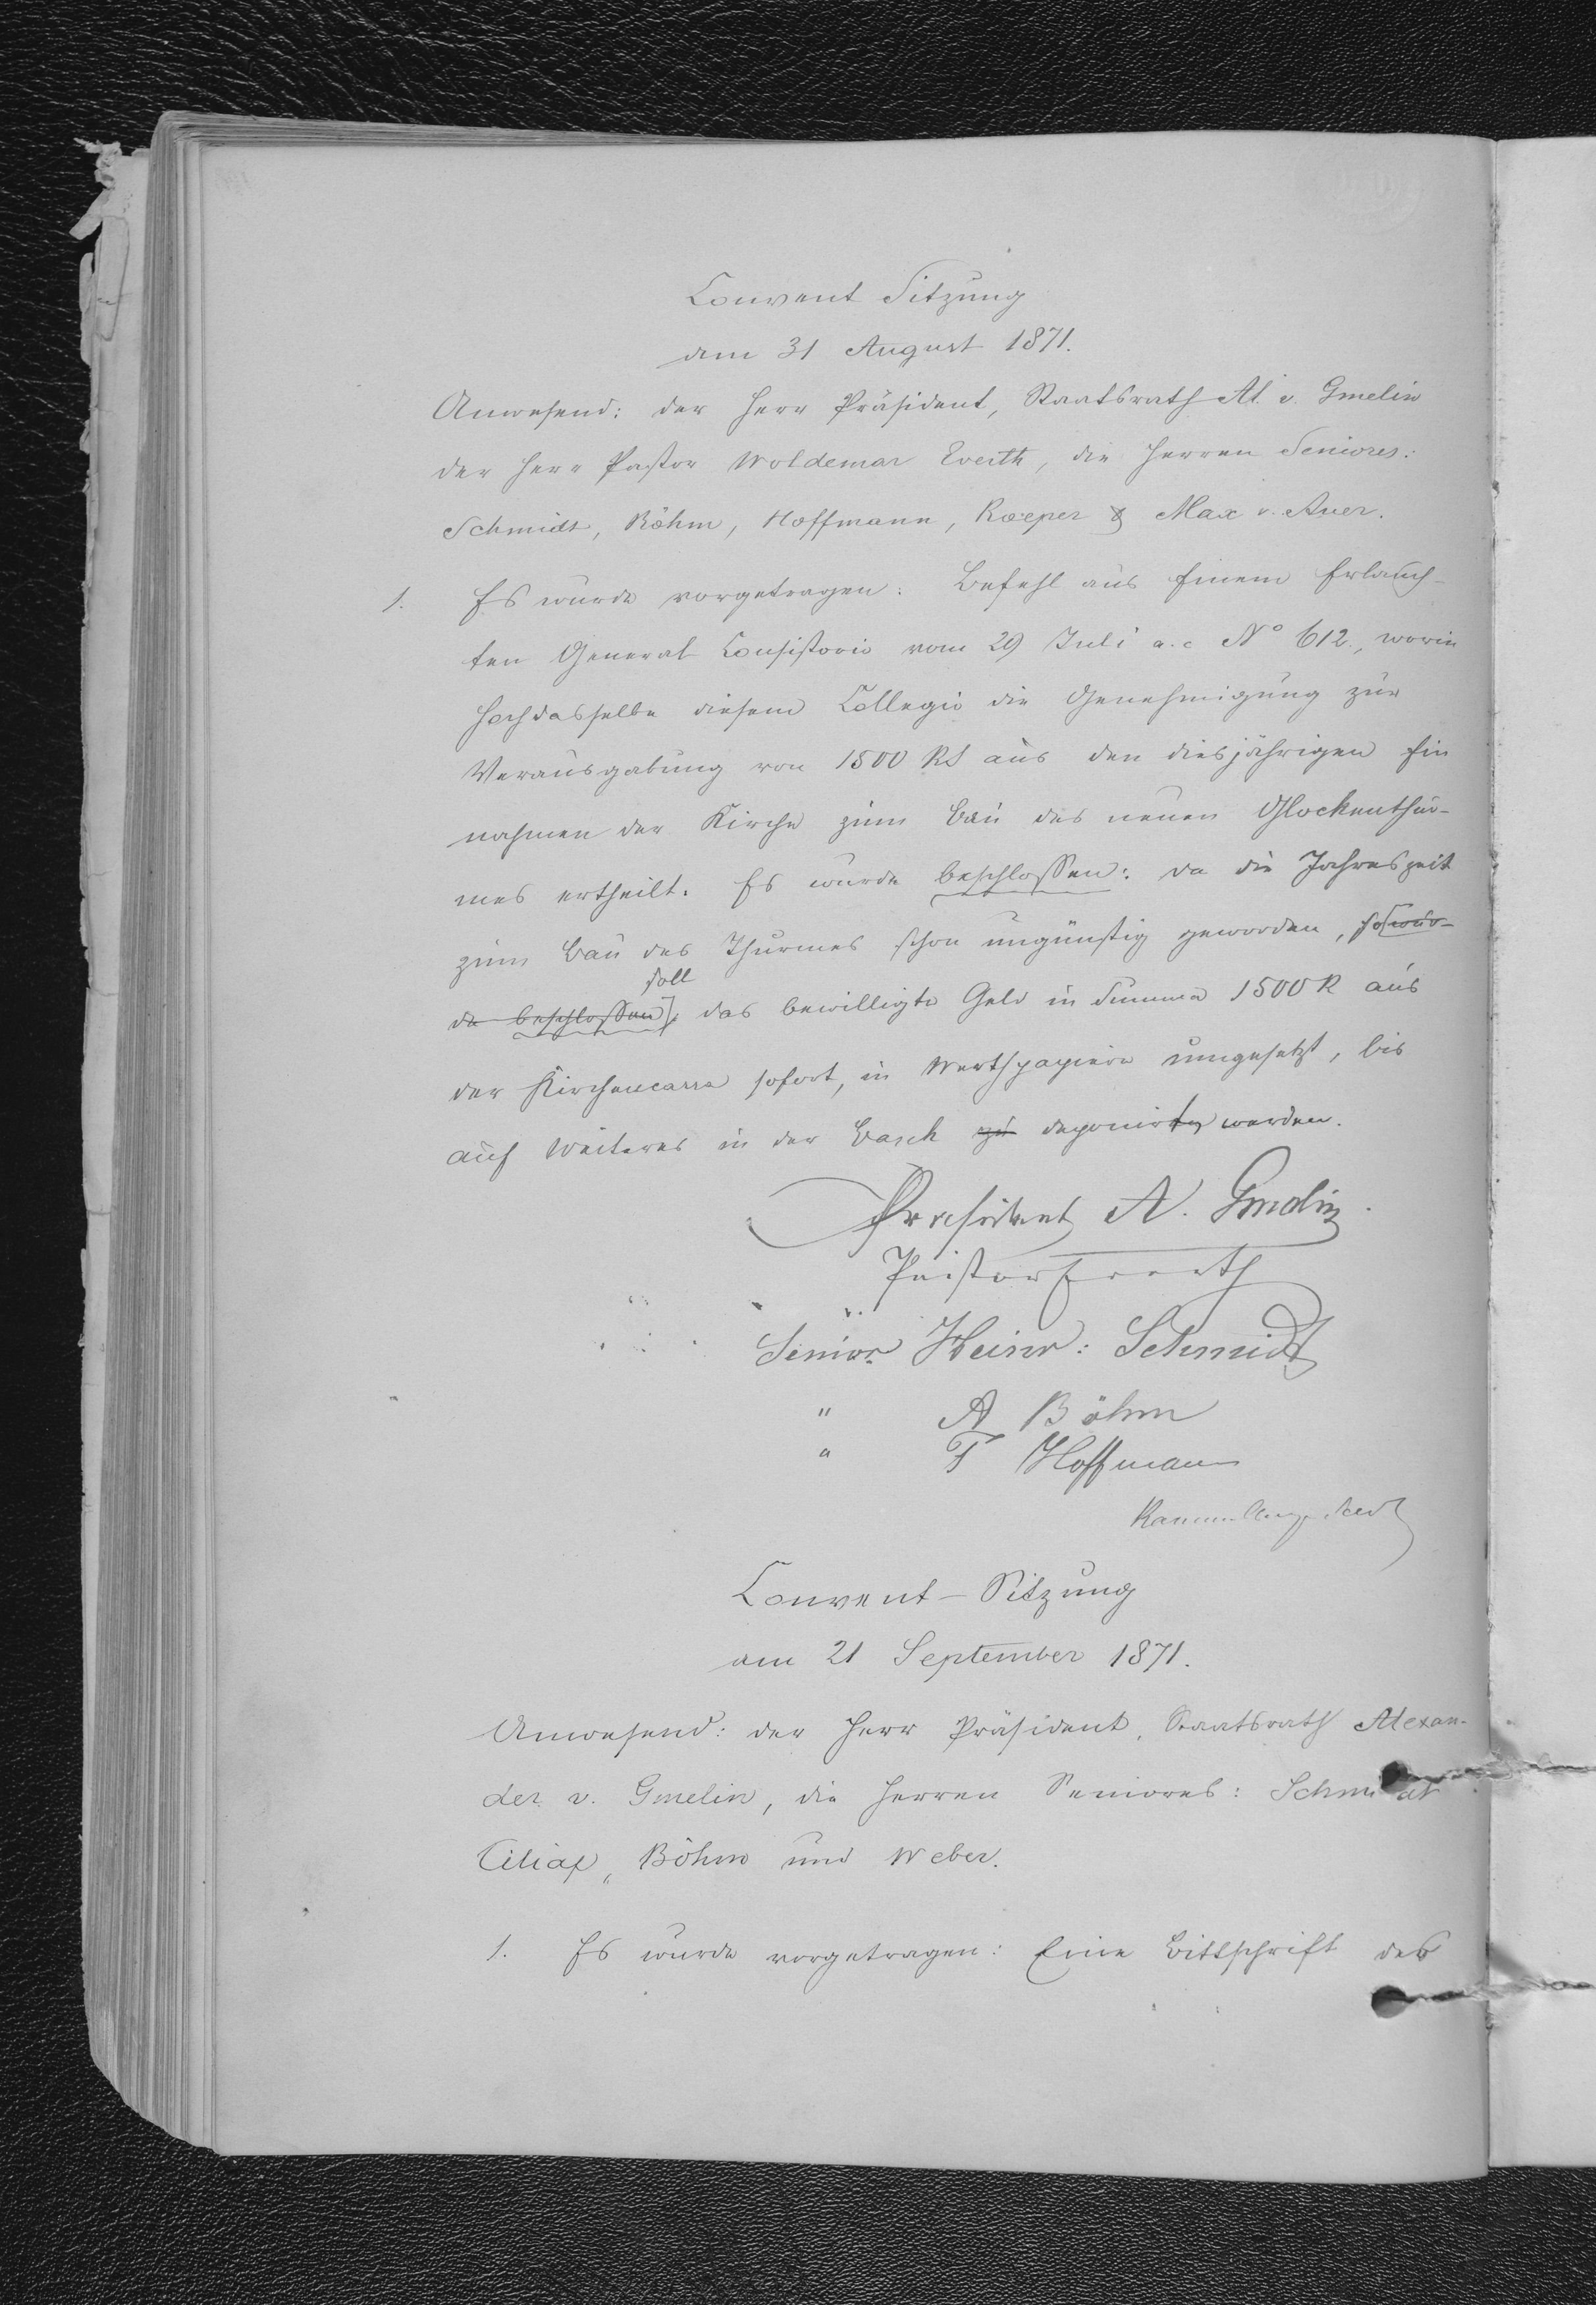 Convent Sitzung
am 31 August 1871.
Anwesend: der Herr Präsident, Staatsrath Al. v. Gmelin
der Herr Pastor Woldemar Everth, die Herren Seniores:
Schmidt, Böhm, Hoffmann, Roeper & Max v. Auer.
1. Es wurde vorgetragen: Befehl aus Einem Erlauch-
ten General Consistorio vom 29 Juli a. c. No 612., worin
Hochdasselbe diesem Collegio die Genehmigung zur
Verausgabung von 1500 RS aus den diesjährigen Ein
nahmen der Kirche zum Bau des neuen Glockenthur-
mes ertheilt. Es wurde beschlossen: da die Jahreszeit
zum Bau des Thurmes schon ungünstig geworden, so wur-
soll
de beschlossen, das bewilligte Geld in Summa 1500 R aus
der Kirchencassa sofort, in Werthpapiere umgesetzt, bis
auf Weiteres in der Bank zu deponirt werden.
Praesident A. Gmelin.
Pastor Everth
Senior Heinr: Schmidt
" A Böhm
" F Hoffmann
Convent-Sitzung
am 21 September 1871.
Anwesend: der Herr Präsident, Staatsrath Alexan-
der v. Gmelin, die Herren Seniores: Schmidt
Ciliax, Böhm und Weber.
1. Es wurde vorgetragen: Eine Bittschrift des